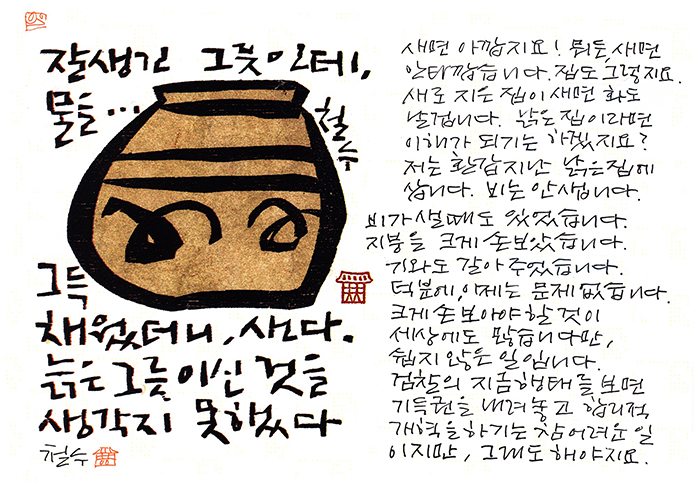 잘생긴 그릇인데,
물을...
철수
그득
채웠더니, 샌다.
늙은 그릇이신 것을
생각지 못했다
철수
새면 아깝지요! 뭐든, 새면
안타깝습니다. 집도 그렇지요.
새로 지은 집이 새면 화도
날겁니다. 낡은 집이라면
이해가 되기는 하겠지요?
저는 환갑지난 낡은집에
삽니다. 비는 안샙니다.
비가 샐때도 있었습니다.
지붕을 크게 손보았습니다.
기와도 갈아주었습니다.
덕분에, 이제는 문제 없습니다.
크게 손보아야 할 것이
세상에도 많습니다만,
쉽지 않은 일입니다.
검찰의 지금행태를 보면
기득권을 내려놓고 합리적
개혁을 하기는 참 어려운 일
이지만, 그래도 해야지요.